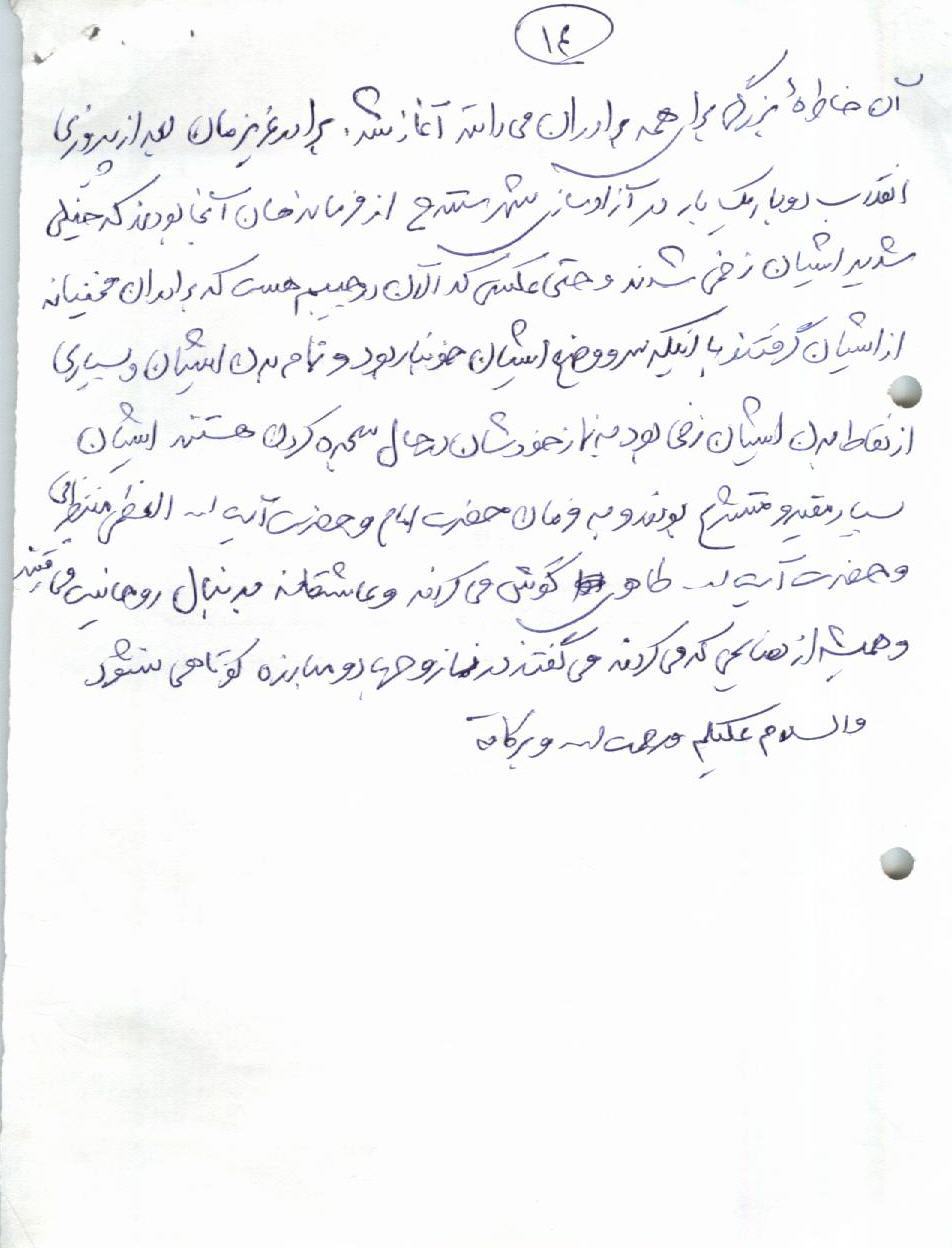 ۱۴
آن خاطرهٔ بزرگی برای همه برادران می دانند آغاز شد. برادر عزیزمان بعد از پیروزی
انقلاب دوبار یک بار در آزادسازی شهر سنندج از فرماندهان آنجا بودند که خیلی
شدید ایشان زخمی شدند و حتی عکسی که الان در جیبم هست که برادران مخفیانه
از ایشان گرفتند با اینکه سر و وضع ایشان خونبار بود و تمام بدن ایشان و بسیاری
از نقاط بدن ایشان زخمی بود به نماز خودشان در حال سجده کردن هستند ایشان
بسیار مقید و متشرع بودند و به فرمان حضرت امام و حضرت آیت الله العظمی منتظری
و حضرت آیت الله طاهری گوش می کردند و عاشقانه به دنبال روحانیت می رفتند
و همیشه از نصایحی که می کردند می گفتند در نماز و جهاد و مبارزه کوتاهی نشود
والسلام علیکم و رحمت الله و برکاته